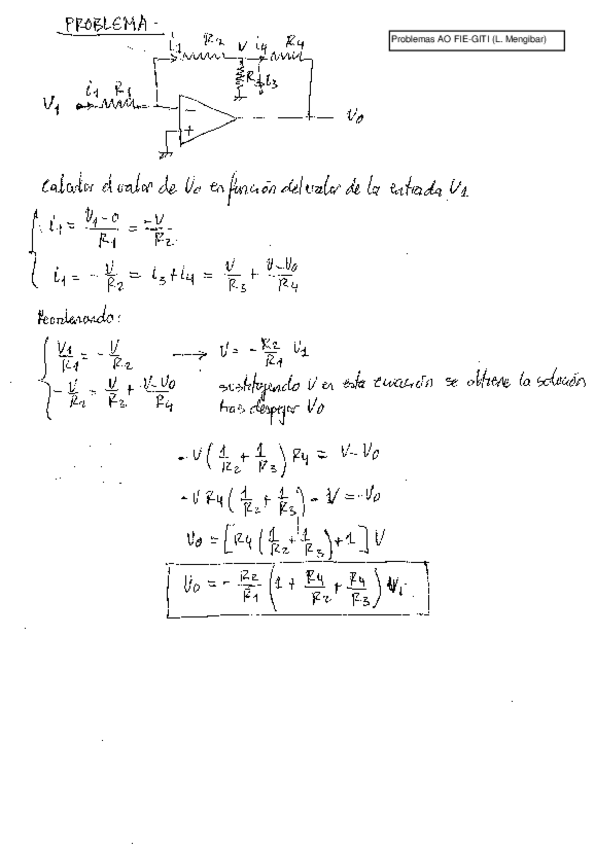 PROBLEMA.-
Problemas AO FIE-GITI (L. Mengibar)
i1 R2 V i4 R4
R3 i3
V1 i1 R1 - V0
+
Calcular el valor de V0 en función del valor de la entrada V1
i1 = (V1-0)/R1 = -V/R2
i1 = -V/R2 = i3 + i4 = V/R3 + (V-V0)/R4
Reordenando:
V1/R1 = -V/R2 → V = -R2/R1 V1
-V/R2 = V/R3 + (V-V0)/R4 sustituyendo V en esta ecuación se obtiene la solución
tras despejar V0
-V(1/R2 + 1/R3) R4 = V-V0
-V R4 (1/R2 + 1/R3) - V = -V0
V0 = [R4 (1/R2 + 1/R3) + 1] V
V0 = -R2/R1 (1 + R4/R2 + R4/R3) V1